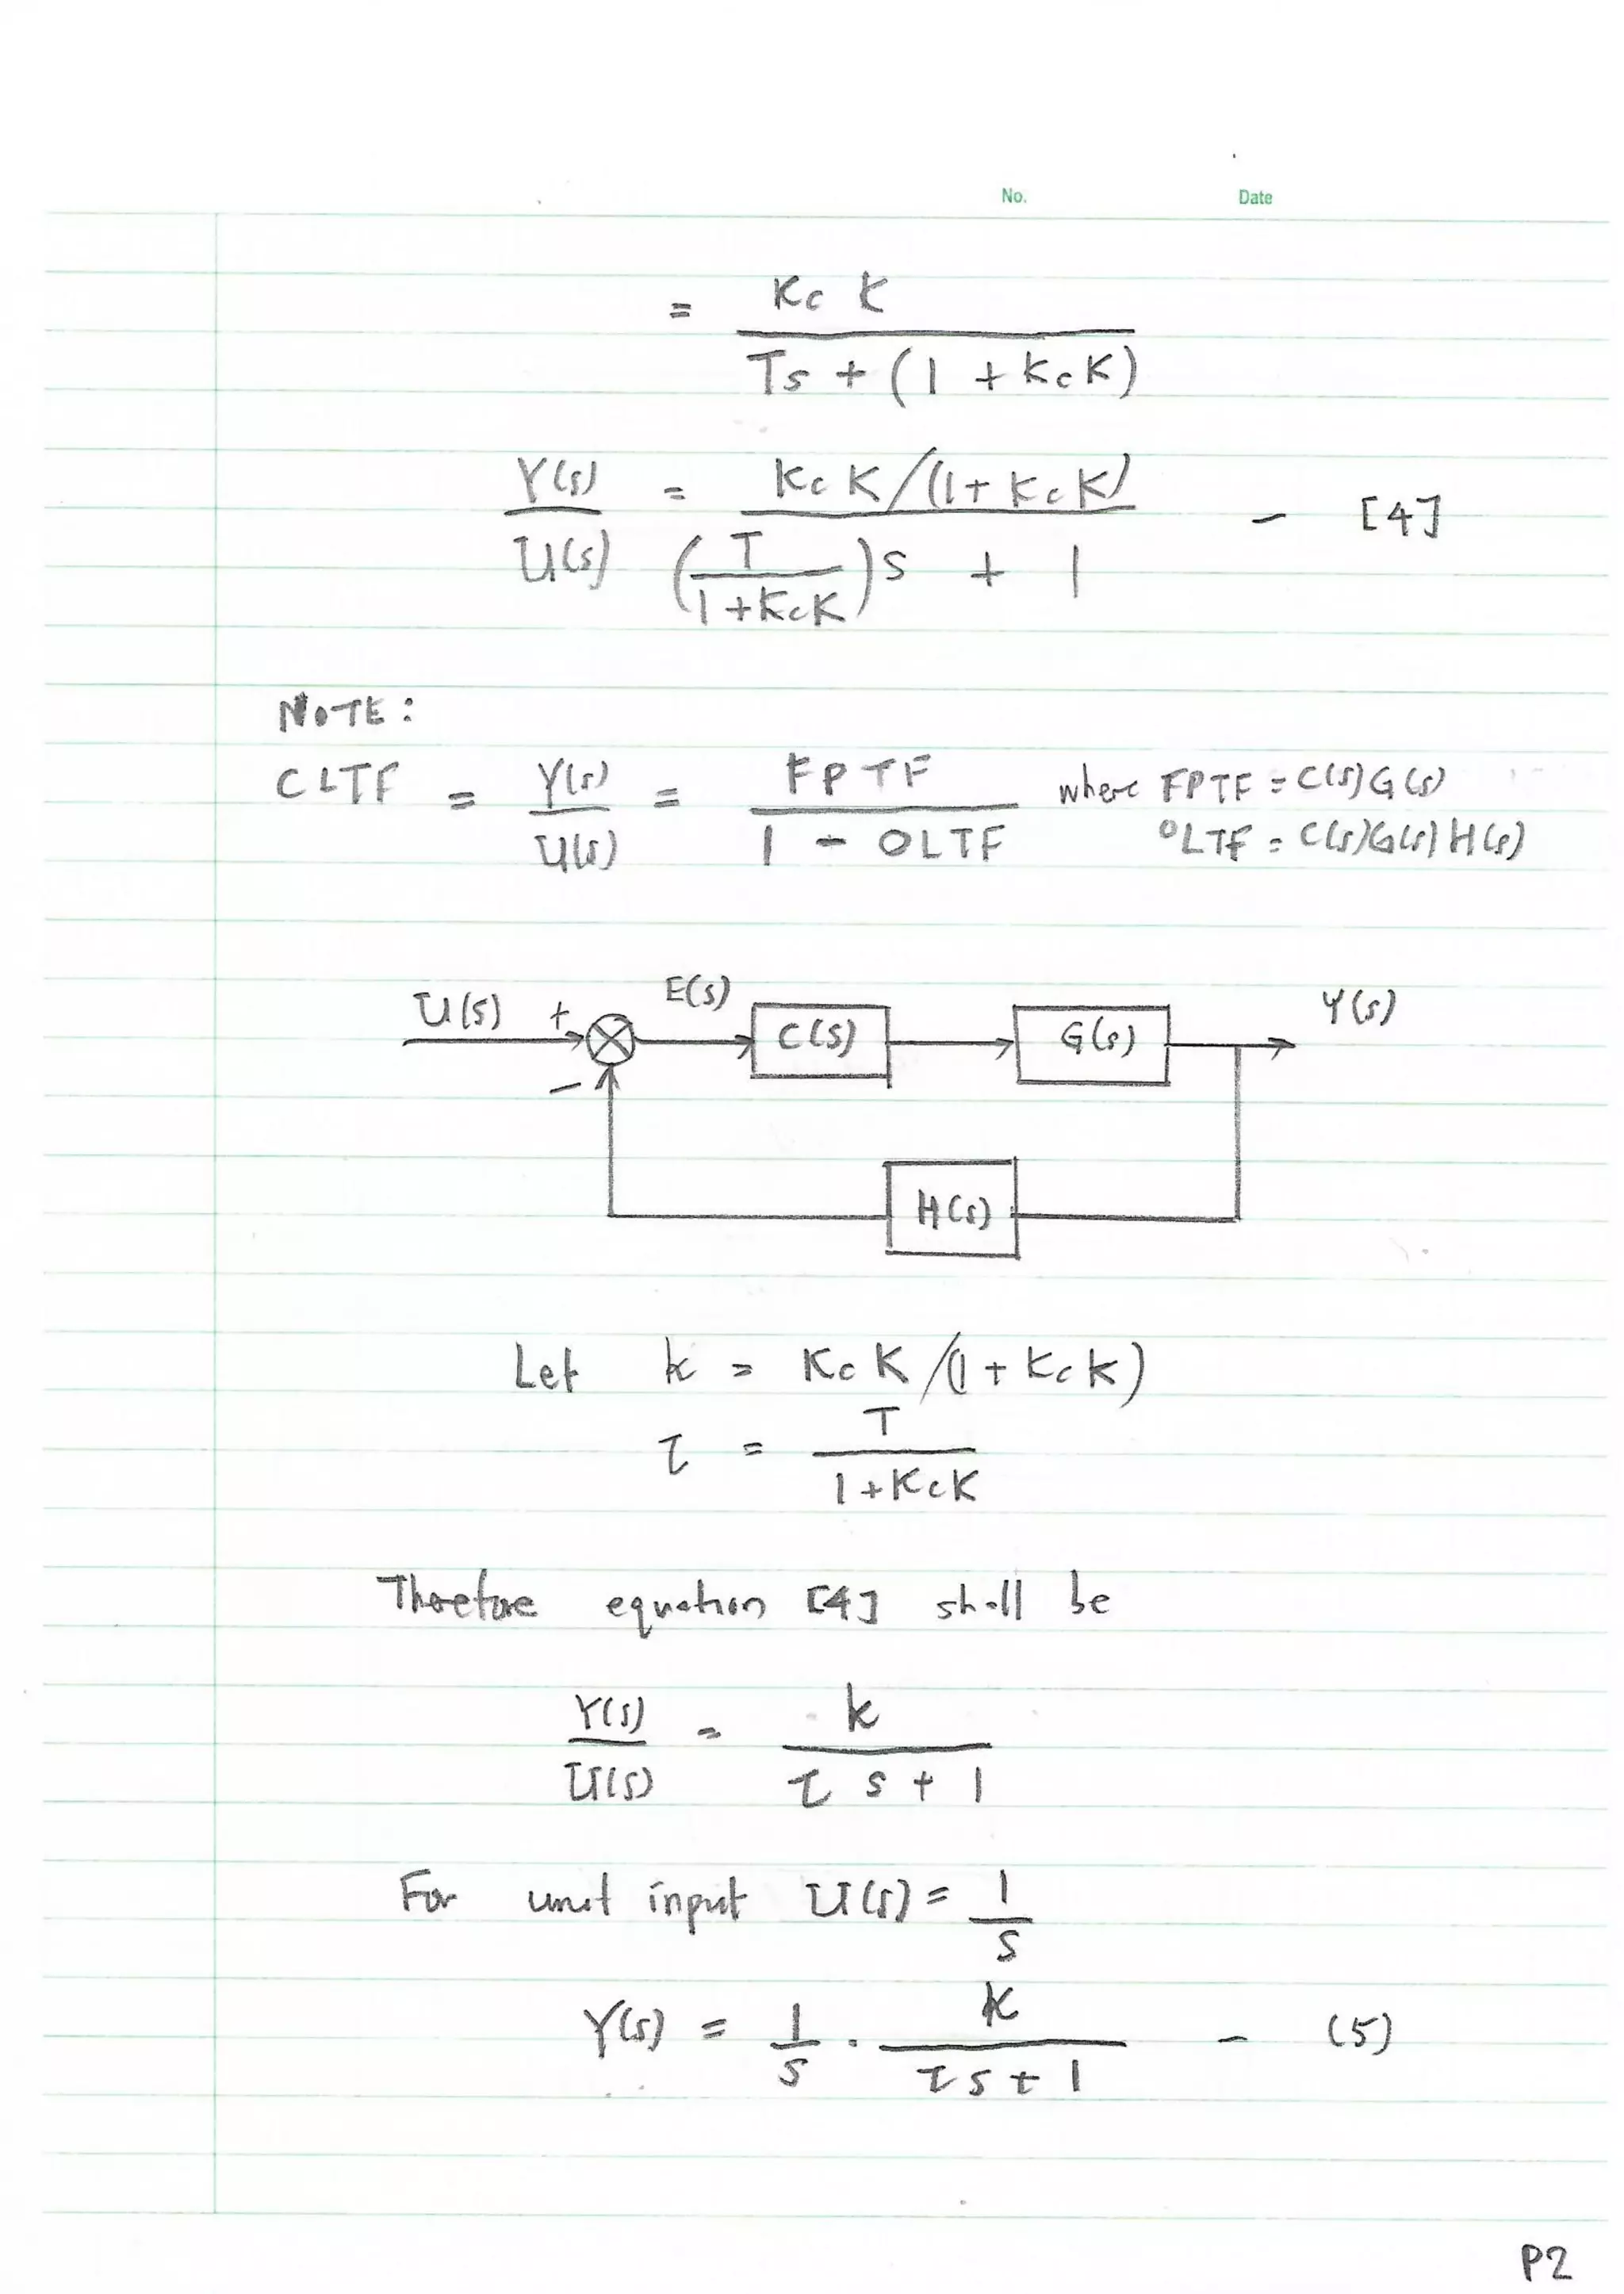 No. Date
= Kc K / Ts + (1 + KcK)
Y(s)/U(s) = Kc K/(1+KcK) / (T/1+KcK)s + 1 - [4]
NOTE:
CLTF = Y(s)/U(s) = FPTF / 1 - OLTF where FPTF = C(s)G(s)
OLTF = C(s)G(s)H(s)
U(s) + E(s) C(s) G(s) Y(s)
-
H(s)
Let k = KcK/(1+KcK)
τ = T / 1+KcK
Therefore equation [4] shall be
Y(s)/U(s) = k / τs + 1
For unit input U(s) = 1/s
Y(s) = 1/s . k / τs + 1 - (5)
P2